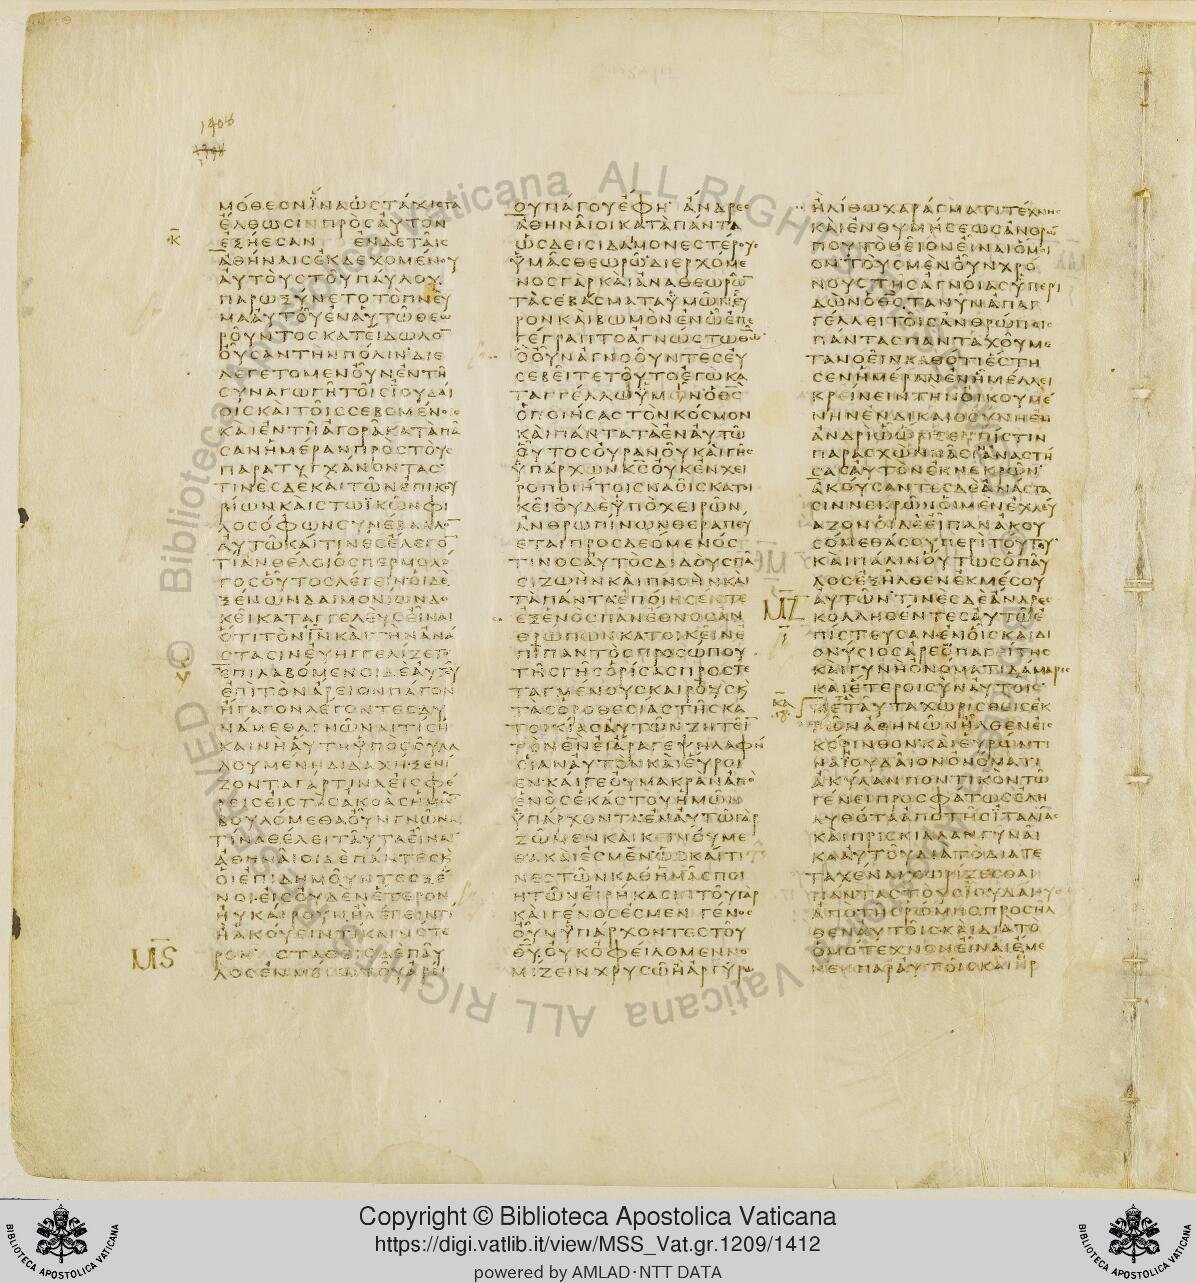 1408
ΜΟΘΕΟΝΪΝΑΩΣΤΑΧΙΣΤΑ
ΕΛΘΩΣΙΝΠΡΟΣΑΥΤΟΝ
ΕΞΗΕΣΑΝ ΕΝΔΕΤΑΙΣ
ΑΘΗΝΑΙΣΕΚΔΕΧΟΜΕΝΟΥ
ΑΥΤΟΥΣΤΟΥΠΑΥΛΟΥ
ΠΑΡΩΞΥΝΕΤΟΤΟΠΝΕΥ
ΜΑΑΥΤΟΥΕΝΑΥΤΩΘΕΩ
ΡΟΥΝΤΟΣΚΑΤΕΙΔΩΛΟ
ΟΥΣΑΝΤΗΝΠΟΛΙΝ ΔΙΕ
ΛΕΓΕΤΟΜΕΝΟΥΝΕΝΤΗ
ΣΥΝΑΓΩΓΗΤΟΙΣΙΟΥΔΑΙ
ΟΙΣΚΑΙΤΟΙΣΣΕΒΟΜΕΝΟΙΣ
ΚΑΙΕΝΤΗΑΓΟΡΑΚΑΤΑΠΑ
ΣΑΝΗΜΕΡΑΝΠΡΟΣΤΟΥΣ
ΠΑΡΑΤΥΓΧΑΝΟΝΤΑΣ
ΤΙΝΕΣΔΕΚΑΙΤΩΝΕΠΙΚΟΥ
ΡΙΩΝΚΑΙΣΤΩΪΚΩΝΦΙ
ΛΟΣΟΦΩΝΣΥΝΕΒΑΛΛΟ
ΑΥΤΩΚΑΙΤΙΝΕΣΕΛΕΓΟ
ΤΙΑΝΘΕΛΟΙΟΣΠΕΡΜΟΛΟ
ΓΟΣΟΥΤΟΣΛΕΓΕΙΝΟΙΔΕ
ΞΕΝΩΝΔΑΙΜΟΝΙΩΝΔΟ
ΚΕΙΚΑΤΑΓΓΕΛΕΥΣΕΙΝΑΙ
ΟΤΙΤΟΝΙΝΚΑΙΤΗΝΑΝΑ
ΣΤΑΣΙΝΕΥΗΓΓΕΛΙΖΕΤΟ
ΕΠΙΛΑΒΟΜΕΝΟΙΔΕΑΥΤΟΥ
ΕΠΙΤΟΝΑΡΕΙΟΝΠΑΓΟΝ
ΗΓΑΓΟΝΛΕΓΟΝΤΕΣΔΥ
ΝΑΜΕΘΑΓΝΩΝΑΙΤΙΣΗ
ΚΑΙΝΗΑΥΤΗΫΠΟΣΟΥΛΑ
ΛΟΥΜΕΝΗΔΙΔΑΧΗ ΞΕΝΙ
ΖΟΝΤΑΓΑΡΤΙΝΑΕΙΣΦΕ
ΡΕΙΣΕΙΣΤΑΣΑΚΟΑΣΗΜΩ
ΒΟΥΛΟΜΕΘΑΟΥΝΓΝΩΝΑΙ
ΤΙΝΑΘΕΛΕΙΤΑΥΤΑΕΙΝΑΙ
ΑΘΗΝΑΙΟΙΔΕΠΑΝΤΕΣΚ
ΟΙΕΠΙΔΗΜΟΥΝΤΕΣΞΕ
ΝΟΙΕΙΣΟΥΔΕΝΕΤΕΡΟΝ
ΗΥΚΑΙΡΟΥΝΗΛΕΓΕΙΝΤΙ
ΗΑΚΟΥΕΙΝΤΙΚΑΙΝΟΤΕ
ΡΟΝ ΣΤΑΘΕΙΣΔΕΠΑΥ
ΛΟΣΕΝΜΕΣΩΤΟΥΑΡΕΙ
ΟΥΠΑΓΟΥΕΦΗ ΑΝΔΡΕΣ
ΑΘΗΝΑΙΟΙΚΑΤΑΠΑΝΤΑ
ΩΣΔΕΙΣΙΔΑΙΜΟΝΕΣΤΕΡΟΥΣ
ΫΜΑΣΘΕΩΡΩΔΙΕΡΧΟΜΕ
ΝΟΣΓΑΡΚΑΙΑΝΑΘΕΩΡΩ
ΤΑΣΕΒΑΣΜΑΤΑΫΜΩΝΕΥ
ΡΟΝΚΑΙΒΩΜΟΝΕΝΩΕΠΕ
ΓΕΓΡΑΠΤΟΑΓΝΩΣΤΩΘΩ
ΟΟΥΝΑΓΝΟΟΥΝΤΕΣΕΥ
ΣΕΒΕΙΤΕΤΟΥΤΟΕΓΩΚΑ
ΤΑΓΓΕΛΛΩΫΜΙΝΟΘΣ
ΟΠΟΙΗΣΑΣΤΟΝΚΟΣΜΟΝ
ΚΑΙΠΑΝΤΑΤΑΕΝΑΥΤΩ
ΟΥΤΟΣΟΥΡΑΝΟΥΚΑΙΓΗΣ
ΫΠΑΡΧΩΝΚΣΟΥΚΕΝΧΕΙ
ΡΟΠΟΙΗΤΟΙΣΝΑΟΙΣΚΑΤΟΙ
ΚΕΙΟΥΔΕΫΠΟΧΕΙΡΩΝ
ΑΝΘΡΩΠΙΝΩΝΘΕΡΑΠΕΥ
ΕΤΑΙΠΡΟΣΔΕΟΜΕΝΟΣ
ΤΙΝΟΣΑΥΤΟΣΔΙΔΟΥΣΠΑ
ΣΙΖΩΗΝΚΑΙΠΝΟΗΝΚΑΙ
ΤΑΠΑΝΤΑΕΠΟΙΗΣΕΝΤΕ
ΕΞΕΝΟΣΠΑΝΕΘΝΟΣΑΝ
ΘΡΩΠΩΝΚΑΤΟΙΚΕΙΝΕ
ΠΙΠΑΝΤΟΣΠΡΟΣΩΠΟΥ
ΤΗΣΓΗΣΟΡΙΣΑΣΠΡΟΣΤΕ
ΤΑΓΜΕΝΟΥΣΚΑΙΡΟΥΣΚ
ΤΑΣΟΡΟΘΕΣΙΑΣΤΗΣΚΑ
ΤΟΙΚΙΑΣΑΥΤΩΝΖΗΤΕΙ
ΤΟΝΘΝΕΙΑΡΑΓΕΨΗΛΑΦΗ
ΣΙΑΝΑΥΤΟΝΚΑΙΕΥΡΟΙ
ΕΝ ΚΑΙΓΕΟΥΜΑΚΡΑΝΑΠΟ
ΕΝΟΣΕΚΑΣΤΟΥΗΜΩΝ
ΫΠΑΡΧΟΝΤΑΕΝΑΥΤΩΓΑΡ
ΖΩΜΕΝΚΑΙΚΕΙΝΟΥΜΕ
ΘΑΚΑΙΕΣΜΕΝΩΣΚΑΙΤΙ
ΝΕΣΤΩΝΚΑΘΗΜΑΣΠΟΙ
ΗΤΩΝΕΙΡΗΚΑΣΙΝΤΟΥΓΑΡ
ΚΑΙΓΕΝΟΣΕΣΜΕΝ ΓΕΝΟΣ
ΟΥΝΫΠΑΡΧΟΝΤΕΣΤΟΥ
ΘΥΟΥΚΟΦΕΙΛΟΜΕΝΝΟ
ΜΙΖΕΙΝΧΡΥΣΩΗΑΡΓΥΡΩ
ΗΛΙΘΩΧΑΡΑΓΜΑΤΙΤΕΧΝΗΣ
ΚΑΙΕΝΘΥΜΗΣΕΩΣΑΝΘΡΩ
ΠΟΥΤΟΘΕΙΟΝΕΙΝΑΙΟΜΟΙ
ΟΝ ΤΟΥΣΜΕΝΟΥΝΧΡΟ
ΝΟΥΣΤΗΣΑΓΝΟΙΑΣΫΠΕΡΙ
ΔΩΝΟΘΣΤΑΝΥΝΑΠΑΓ
ΓΕΛΛΕΙΤΟΙΣΑΝΘΡΩΠΟΙΣ
ΠΑΝΤΑΣΠΑΝΤΑΧΟΥΜΕ
ΤΑΝΟΕΙΝΚΑΘΟΤΙΕΣΤΗ
ΣΕΝΗΜΕΡΑΝΕΝΗΜΕΛΛΕΙ
ΚΡΕΙΝΕΙΝΤΗΝΟΙΚΟΥΜΕ
ΝΗΝΕΝΔΙΚΑΙΟΣΥΝΗΕΝ
ΑΝΔΡΙΩΩΡΙΣΕΝΠΙΣΤΙΝ
ΠΑΡΑΣΧΩΝΠΑΣΙΑΝΑΣΤΗ
ΣΑΣΑΥΤΟΝΕΚΝΕΚΡΩΝ
ΑΚΟΥΣΑΝΤΕΣΔΕΑΝΑΣΤΑ
ΣΙΝΝΕΚΡΩΝΟΙΜΕΝΕΧΛΕΥ
ΑΖΟΝΟΙΔΕΕΙΠΑΝΑΚΟΥ
ΣΟΜΕΘΑΣΟΥΠΕΡΙΤΟΥΤΟΥ
ΚΑΙΠΑΛΙΝΟΥΤΩΣΟΠΑΥ
ΛΟΣΕΞΗΛΘΕΝΕΚΜΕΣΟΥ
ΑΥΤΩΝΤΙΝΕΣΔΕΑΝΔΡΕΣ
ΚΟΛΛΗΘΕΝΤΕΣΑΥΤΩΕ
ΠΙΣΤΕΥΣΑΝΕΝΟΙΣΚΑΙΔΙ
ΟΝΥΣΙΟΣΑΡΕΟΠΑΓΙΤΗΣ
ΚΑΙΓΥΝΗΟΝΟΜΑΤΙΔΑΜΑΡΙΣ
ΚΑΙΕΤΕΡΟΙΣΥΝΑΥΤΟΙΣ
ΜΕΤΑΥΤΑΧΩΡΙΣΘΕΙΣΕΚ
ΤΩΝΑΘΗΝΩΝΗΛΘΕΝΕΙΣ
ΚΟΡΙΝΘΟΝΚΑΙΕΥΡΩΝΤΙ
ΝΑΪΟΥΔΑΙΟΝΟΝΟΜΑΤΙ
ΑΚΥΛΑΝΠΟΝΤΙΚΟΝΤΩ
ΓΕΝΕΙΠΡΟΣΦΑΤΩΣΕΛΗ
ΛΥΘΟΤΑΑΠΟΤΗΣΙΤΑΛΙΑΣ
ΚΑΙΠΡΙΣΚΙΛΛΑΝΓΥΝΑΙ
ΚΑΑΥΤΟΥΔΙΑΤΟΔΙΑΤΕ
ΤΑΧΕΝΑΙΧΩΡΙΖΕΣΘΑΙ
ΠΑΝΤΑΣΤΟΥΣΙΟΥΔΑΙΟΥΣ
ΑΠΟΤΗΣΡΩΜΗΣΠΡΟΣΗΛ
ΘΕΝΑΥΤΟΙΣΚΑΙΔΙΑΤΟ
ΟΜΟΤΕΧΝΟΝΕΙΝΑΙΕΜΕ
ΝΕΝΠΑΡΑΥΤΟΙΣΚΑΙΗΡ
Κ
ΜS
ΜΖ
Copyright © Biblioteca Apostolica Vaticana
https://digi.vatlib.it/view/MSS_Vat.gr.1209/1412
powered by AMLAD·NTT DATA
BIBLIOTECA APOSTOLICA VATICANA
BIBLIOTECA APOSTOLICA VATICANA